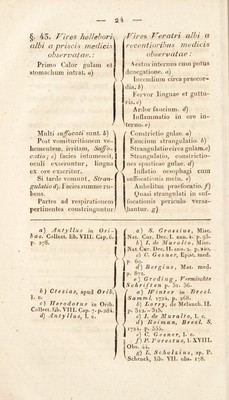 — 24 —
§. 43. Vires hellebori
albi a priscis medicis
observatae:
Primo Calor gulam et
stomachum intrat. a)
Multi suffocati sunt. b)
Post vomituritionem ve-
hementem, irritam, Suffo-
catio; c) facies intumescit,
oculi exseruntur, lingua
ex ore exseritur.
Si tarde vomunt, Stran-
gulatio d). Facies summe ru-
bens.
Partes ad respirationem
pertinentes constringuntur
Vires Veratri albi a
recentioribus medicis
observatae:
Aestus internus cum potus
denegatione. a)
Incendium circa praecor-
dia. b)
Fervor linguae et guttu-
ris. c)
Ardor faucium. d)
Inflammatio in ore in-
terno. e)
Constrictio gulae. a)
Faucium strangulatio b)
Strangulatio circa gulam. c)
Strangulatio, constrictio-
nes spasticae gulae. d)
Inflatio oesophagi cum
suffocationis metu. e)
Anhelitus praefocatio. f)
Quasi strangulati in suf-
focationis periculo versa-
bantur. g)
a) Antyllus in Ori-
bas. Collect. lib. VIII. Cap. 6.
p. 278.
b) Ctesias, apud Orib.
l. c.
c) Herodotus in Orib.
Collect. lib. VIII. Cap. 7. p. 284.
d) Antyllus, l. c.
a) S. Grassius, Misc.
Nat. Cur. Dec. I. ann. 4.
b) I. de Muralto, Misc.
Nat. Cur. Dec. II. ann. 2. p. 240.
c) C. Gesner, Epist. med.
69.
d) Bergius, Mat. med.
p. 872.
e) Greding, Vermischte
Schriften p. 31. 36.
a) Winter in Bresl.
Samml. 1724. p. 268.
b) Lorry, de Melanch. II.
p. 312. — 315.
c) I. de Muralto, l. c.
d) Reiman, Bresl. S.
1724. p. 535.
e) C. Gesner, l. c.
f) P. Forestus, l. XVIII.
Obs. 44.
g) L. Scholzius, ap. P.
Schenck, lib. VII. obs. 178.